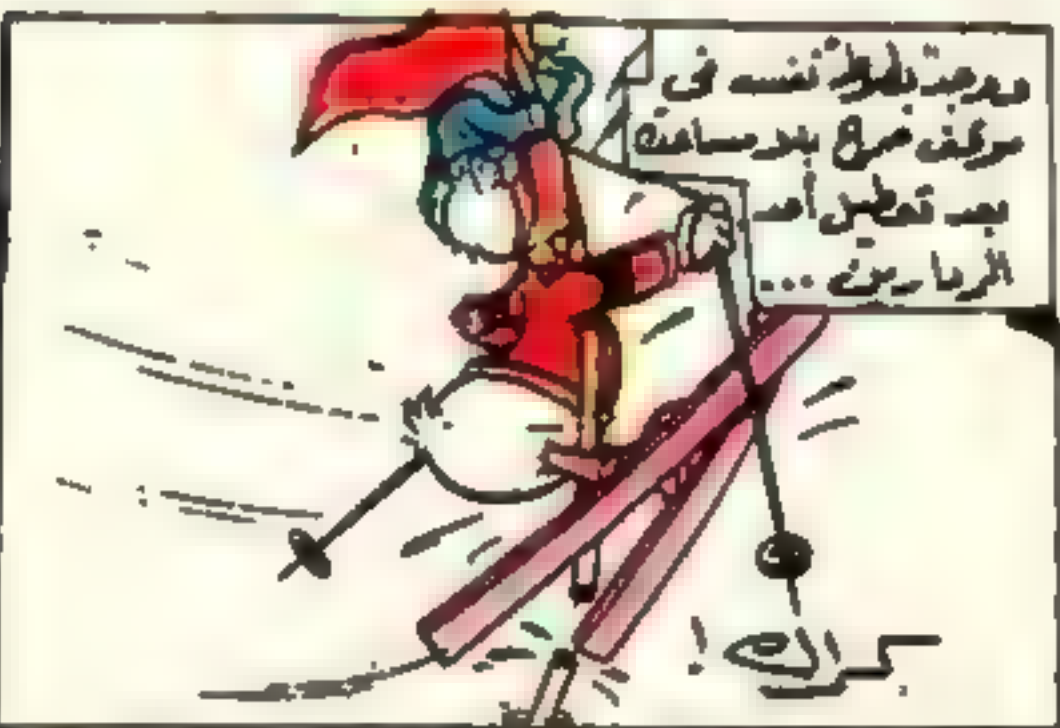 ويوجد بطوط نفسه في
موقف حرج بلا مساعدة
بعد تعطيل أحد
الزمارين ...
كراك !